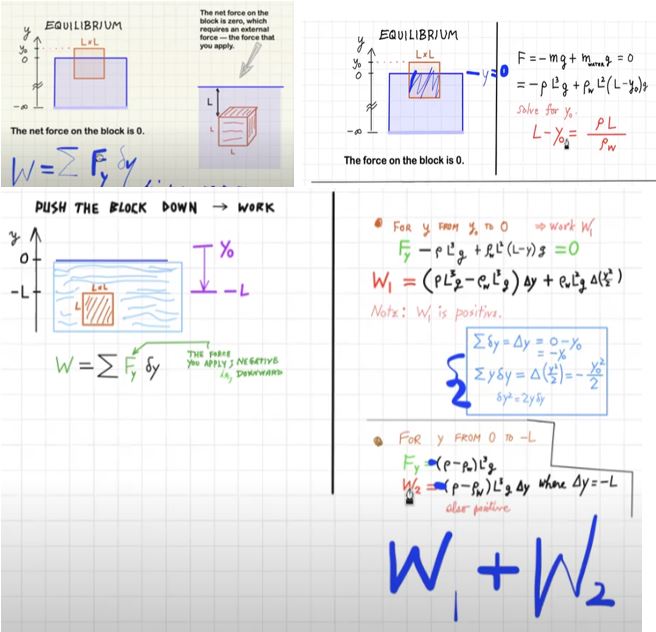 EQUILIBRIUM
y
L×L
y₀
0
-∞
The net force on the
block is zero, which
requires an external
force – the force that
you apply.
L
L
L
The net force on the block is 0.
W = Σ F_y δy
EQUILIBRIUM
y
L×L
y₀
0
-∞
y=0
The force on the block is 0.
F = -mg + m_WATER g = 0
= -ρL³g + ρ_w L²(L-y₀)g
Solve for y₀.
L-y₀ = ρL / ρ_w
PUSH THE BLOCK DOWN → WORK
y
0
-L
L×L
L
y₀
-L
W = Σ F_y δy
THE FORCE
YOU APPLY IS NEGATIVE
DOWNWARD
FOR y FROM y₀ TO 0 ⇒ work W₁
F_y - ρL³g + ρ_w L²(L-y)g = 0
W₁ = (ρL³g - ρ_w L³g) Δy + ρ_w L²g Δ(y²/2)
Note: W₁ is positive.
Σδy = Δy = 0 - y₀
= -y₀
Σyδy = Δ(y²/2) = - y₀²/2
δy² = 2yδy
δ
2
FOR y FROM 0 TO -L
F_y = (ρ-ρ_w)L³g
W₂ = (ρ-ρ_w)L³g Δy where Δy = -L
also positive
W₁ + W₂